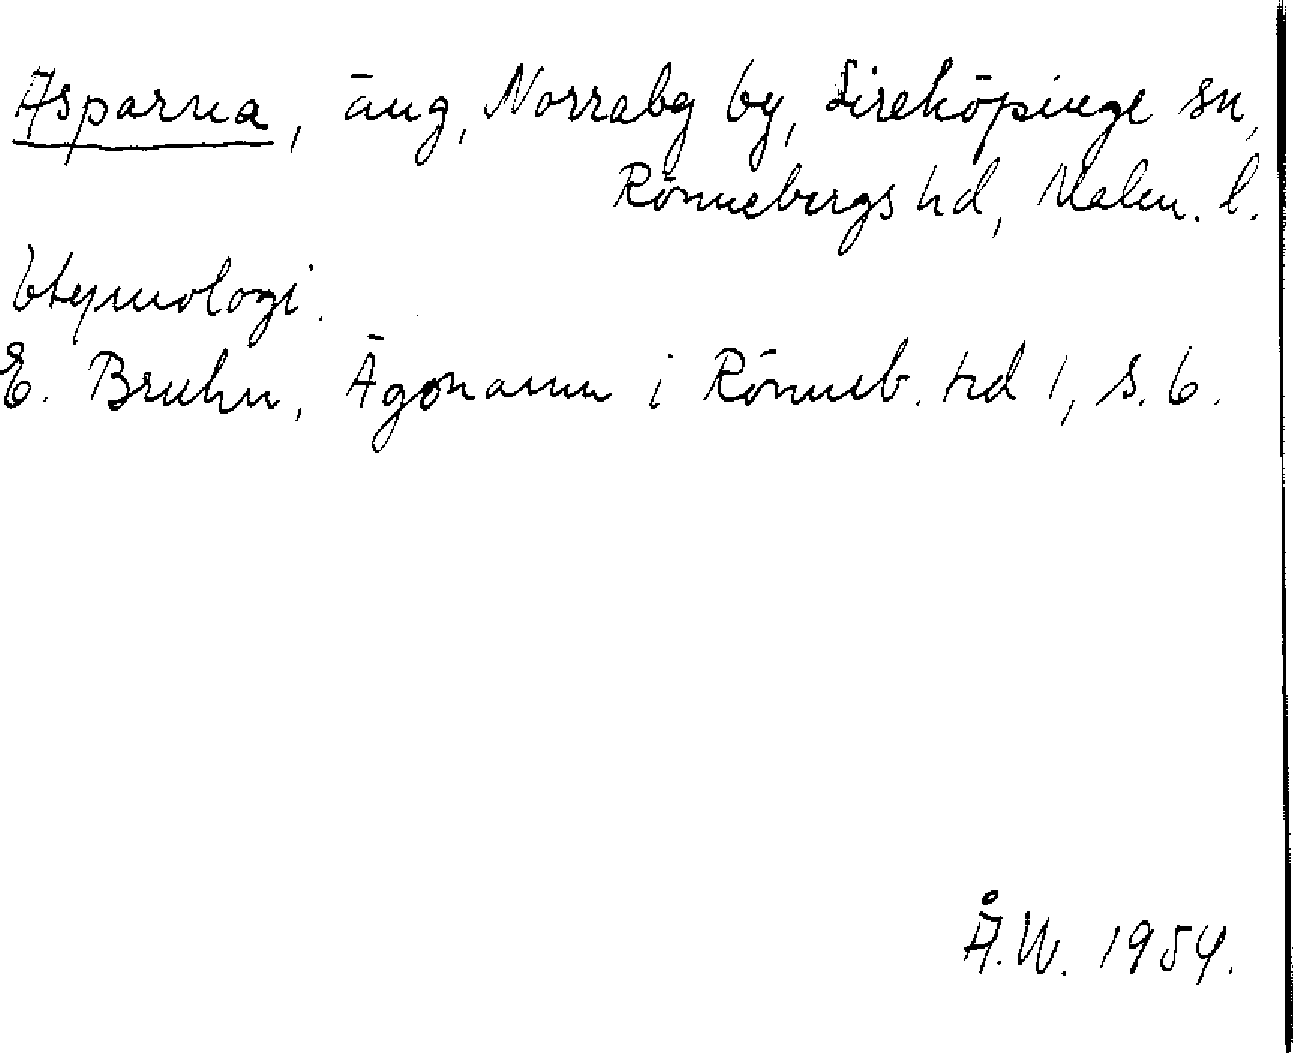 Asparna, äng, Norraby by, Sireköpinge sn,
Rönnebergs hd, Malm. l.
Etymologi.
E. Bruhn, Ägonamn i Rönneb. hd 1, s. 6.
Å.W. 1954.